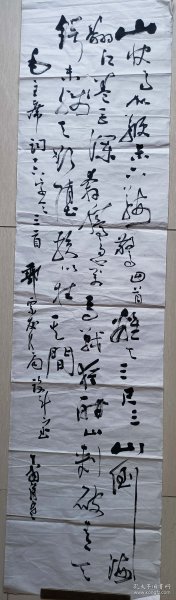 山快马加鞭未下鞍惊回首离天三尺三山倒海
翻江卷巨澜奔腾急万马战犹酣山刺破青天
锷未残天欲堕赖以拄其间
毛主席词十六字令三首
孔夫子旧书网